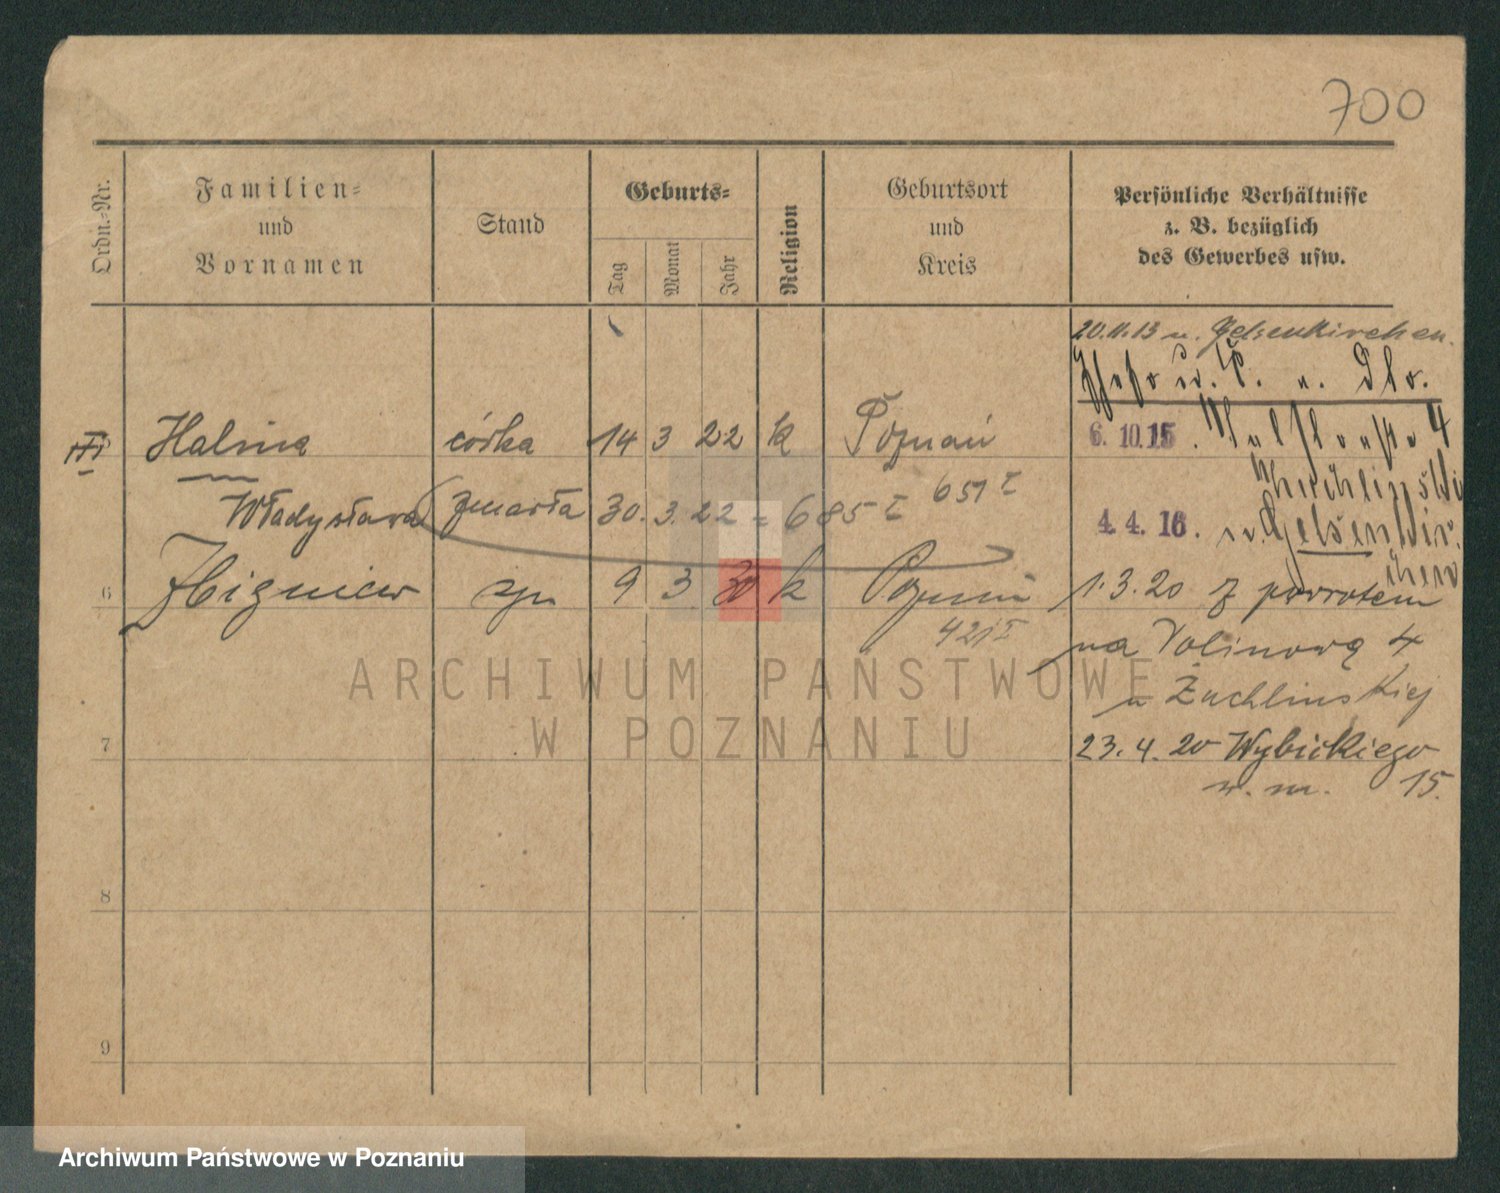 700
Ordn.-Nr.
Familien-
und
Vornamen
Stand
Geburts-
Tag
Monat
Jahr
Religion
Geburtsort
und
Kreis
Persönliche Verhältnisse
z. B. bezüglich
des Gewerbes usw.
20.11.13 n. Gelsenkirchen.
III Halina córka 14 3 22 k Poznań
6. 10. 15. 4
651 I
Władysława zmarła 30. 3. 22 = 685 I
4. 4. 16. n. Gelsenkir.
chen
6 Zbigniew syn 9 3 20 k Poznań
421 I
1.3.20 z powrotem
na Polinową 4
u Żuchlinskiej
7 23.4.20 Wybickiego
w. m. 15.
8
9
ARCHIWUM PAŃSTWOWE
W POZNANIU
Archiwum Państwowe w Poznaniu